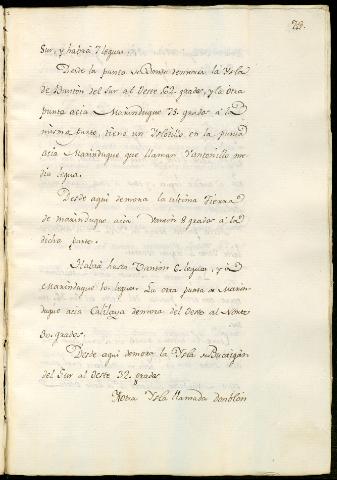 79.
Sur, y habrá 7 leguas.
Desde la punta de donde demora la Ysla
de Bantón del Sur al Oeste 62. grados, y la otra
punta acia Marinduque 75. grados à la
misma parte, tiene un Yslotillo en la punta
acia Marinduque que llaman Vantoncillo me
dia legua.
Desde aqui demora la ultima Tierra
de marinduque acia Vanton 8 grados à la
dicha parte.
Habrá hasta Vantón 6. leguas, y à
Marinduque 10. leguas. La otra punta de Marin
duque acia Calilaya demora del Oeste al Norte
30. grados.
Desde aqui demora la Ysla de Bucaigán
del Sur al Oeste 32. grados
Yotra Ysla llamada donblón